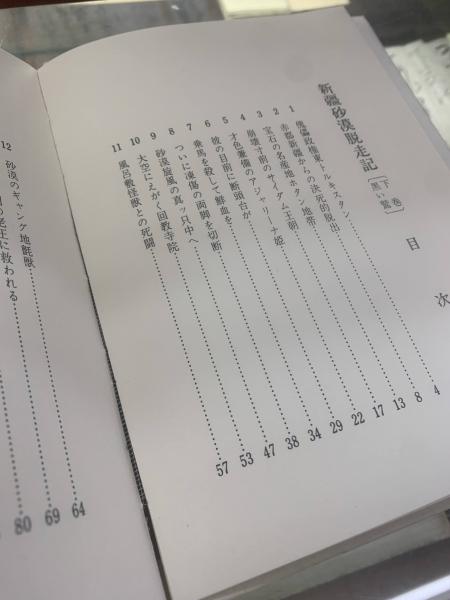 新疆砂漠脱走記［下巻 黒い鷲］
目次
1 傀儡政権東トルキスタン……4
2 赤都新疆からの決死的脱出……8
3 宝石の名産地ホタン地帯……13
4 崩壊寸前のサイダム王朝……17
5 才色兼備のアジャリーナ姫……22
6 彼の目前に断頭台が……29
7 乗馬を殺して鮮血を……34
8 ついに凍傷の両脚を切断……38
9 砂漠旋風の真ッ只中へ……47
10 大空にえがく回教寺院……53
11 風呂敷怪獣との死闘……57
12 砂漠のギャング地獣……64
の老王に救われる……69
80